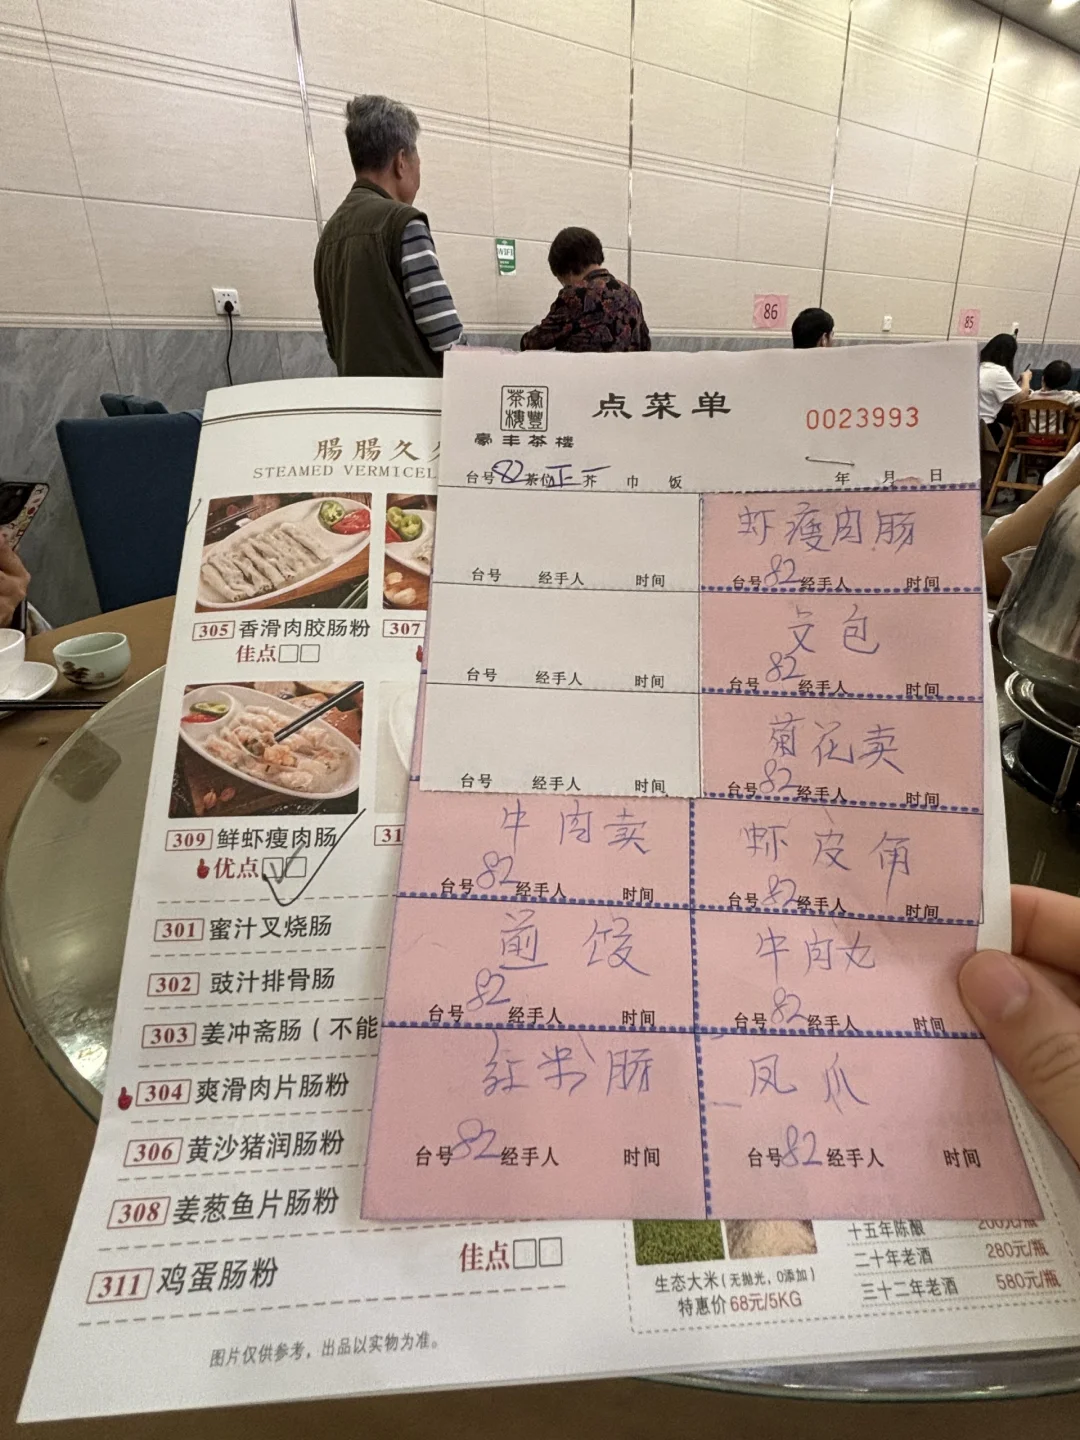 WIFI
86
85
腸腸久
STEAMED VERMICEL
305 香滑肉胶肠粉
307
佳点□□
309 鲜虾瘦肉肠
31
优点□□
301 蜜汁叉烧肠
302 豉汁排骨肠
303 姜冲斋肠（不能
304 爽滑肉片肠粉
306 黄沙猪润肠粉
308 姜葱鱼片肠粉
佳点□□
311 鸡蛋肠粉
图片仅供参考，出品以实物为准。
豪豐茶樓
豪丰茶楼
点菜单
0023993
台号82 茶位正一 芥 巾 饭 年 月 日
台号 经手人 时间
虾瘦肉肠
台号82 经手人 时间
台号 经手人 时间
包
台号82 经手人 时间
台号 经手人 时间
菊花卖
台号82 经手人 时间
牛肉卖
台号82 经手人 时间
虾皮角
台号82 经手人 时间
煎饺
台号82 经手人 时间
牛肉丸
台号82 经手人 时间
红米肠
台号82 经手人 时间
凤爪
台号82 经手人 时间
生态大米（无抛光，0添加）
特惠价68元/5KG
十五年陈酿 200元/瓶
二十年老酒 280元/瓶
三十二年老酒 580元/瓶